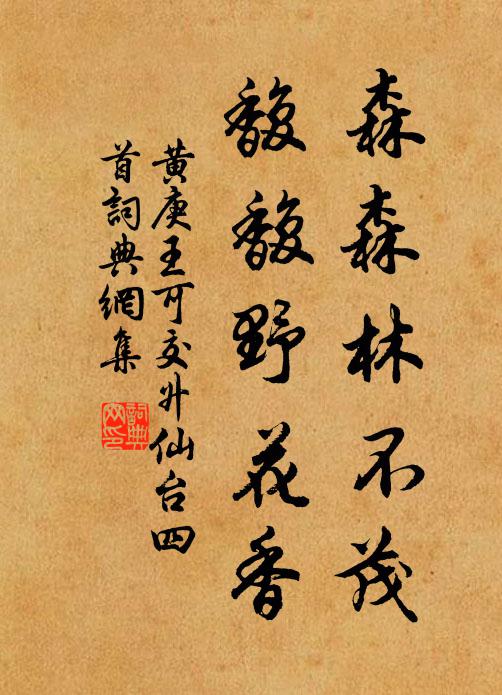 森森林不茂
馥馥野花香
黄庚王可交升仙台四
首词典网集
词典网印